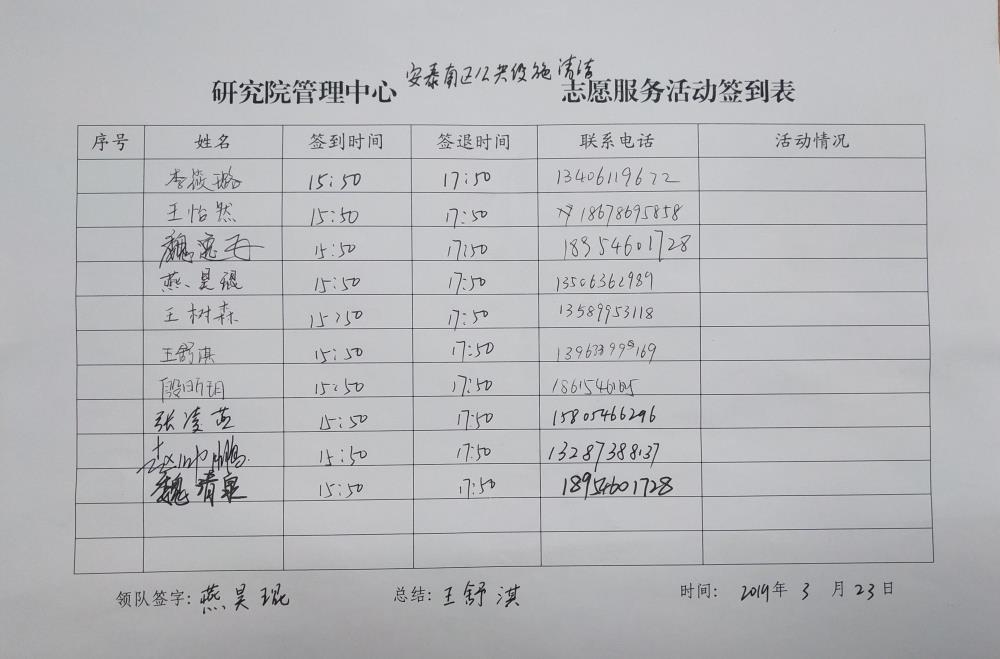 研究院管理中心 安泰南区公共设施清洁 志愿服务活动签到表
序号 姓名 签到时间 签退时间 联系电话 活动情况
李筱璐 15:50 17:50 13406119672
王怡然 15:50 17:50 18678695858
魏 15:50 17:50 18954601728
燕昊琨 15:50 17:50 13506362989
王树森 15:50 17:50 13589953118
王舒淇 15:50 17:50
段昕玥 15:50 17:50
张凌燕 15:50 17:50 15805466296
赵帅鹏 15:50 17:50 13287388137
魏清泉 15:50 17:50 18954601728
领队签字: 燕昊琨 总结: 王舒淇 时间: 2019年 3 月 23 日